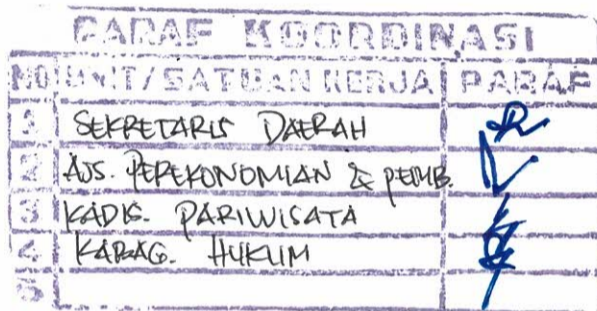 PARAF KOORDINASI
NO UNIT/SATUAN KERJA PARAF
1 SEKRETARIS DAERAH
2 ASS. PEREKONOMIAN & PEMB.
3 KADIS. PARIWISATA
4 KABAG. HUKUM
5